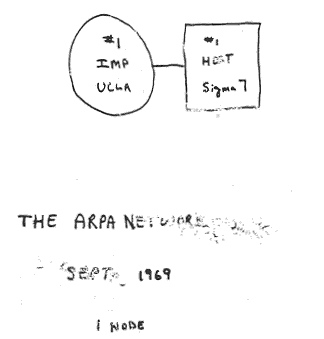 #1
IMP
UCLA
#1
HOST
Sigma 7
THE ARPA NETWORK
SEPT. 1969
1 NODE